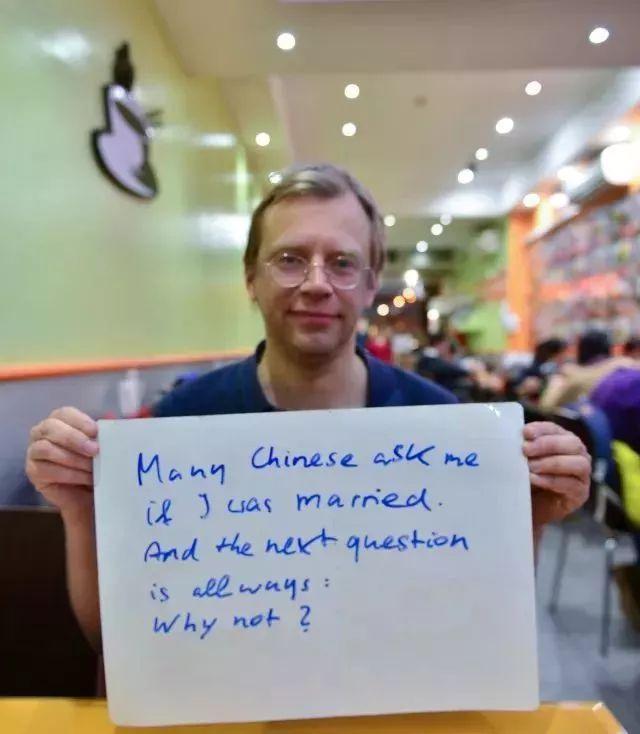 Many Chinese ask me
if I was married.
And the next question
is allways:
Why not ?